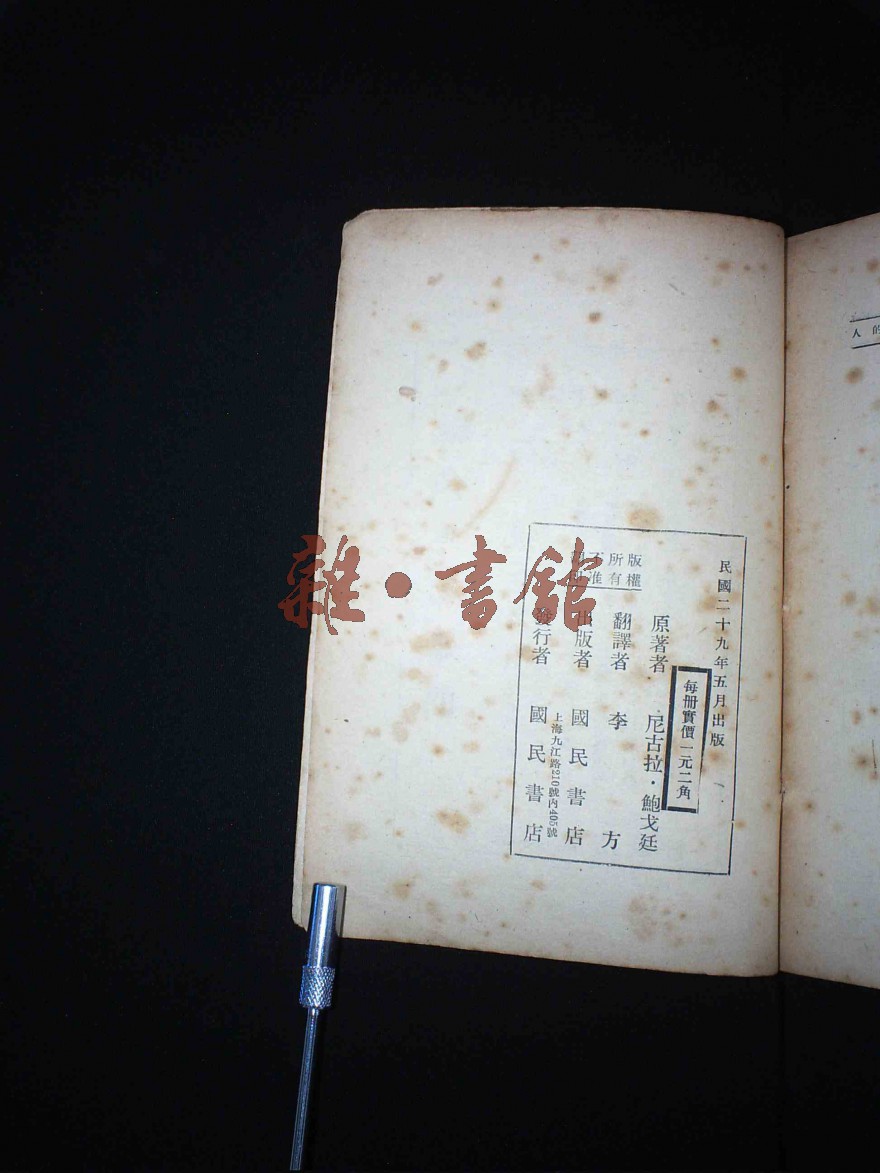 民國二十九年五月出版
每册實價一元二角
原著者 尼古拉·鮑戈廷
翻譯者 李方
出版者 國民書店
上海九江路210號內405號
發行者 國民書店
版權
所有
不准
翻印
人的
雜·書館